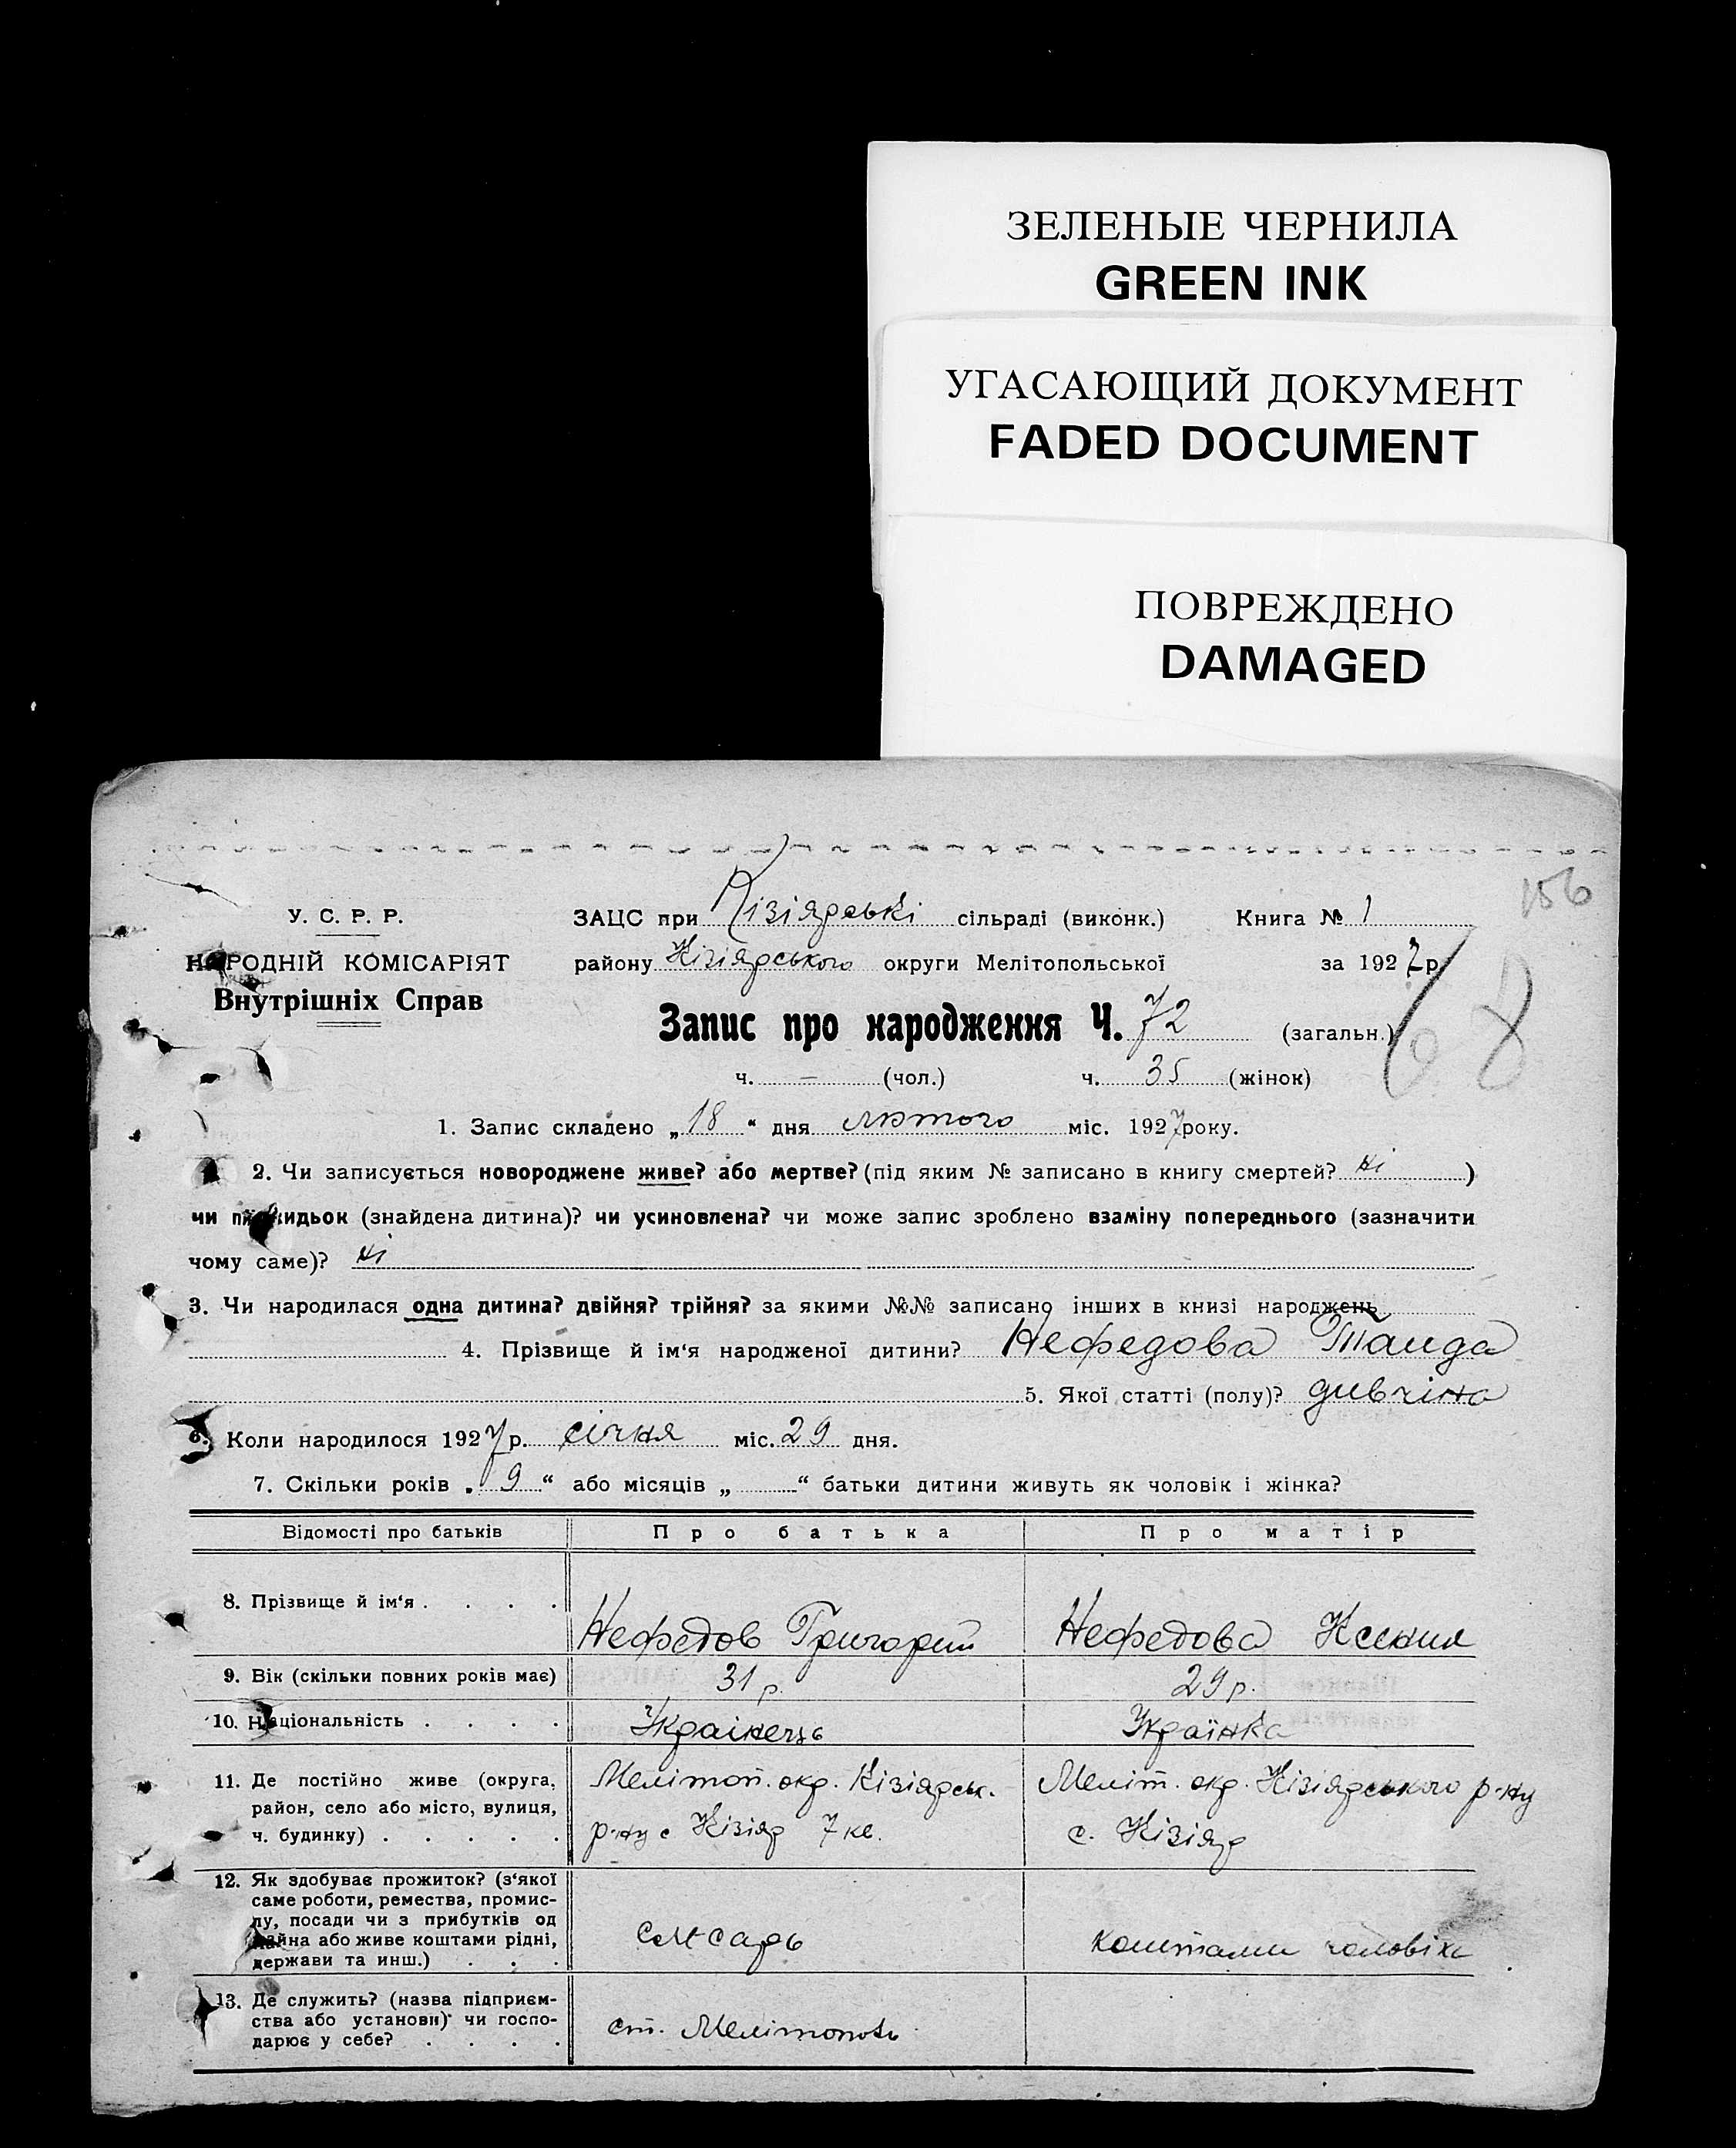 ЗЕЛЕНЫЕ ЧЕРНИЛА
GREEN INK
УГАСАЮЩИЙ ДОКУМЕНТ
FADED DOCUMENT
ПОВРЕЖДЕНО
DAMAGED
156
У. С. Р. Р.
НАРОДНІЙ КОМІСАРІЯТ
Внутрішніх Справ
ЗАЦС при Кізіярські сільраді (виконк.) Книга № 1
району Кізіярського округи Мелітопольської за 1927 р.
68
Запис про народження Ч. 72 (загальн.)
ч. — (чол.) ч. 35 (жінок)
1. Запис складено „18“ дня лютого міс. 1927 року.
2. Чи записується новороджене живе? або мертве? (під яким № записано в книгу смертей? ні )
чи підкидьок (знайдена дитина)? чи усиновлена? чи може запис зроблено взаміну попереднього (зазначити
чому саме)? ні
3. Чи народилася одна дитина? двійня? трійня? за якими №№ записано інших в книзі народжень
4. Прізвище й ім‘я народженої дитини? Нефедова Таида
5. Якої статті (полу)? дивчіна
6. Коли народилося 1927 р. січня міс. 29 дня.
7. Скільки років „9“ або місяців „ “ батьки дитини живуть як чоловік і жінка?
Відомості про батьків Про батька Про матір
8. Прізвище й ім‘я . . . . Нефедов Григорий Нефедова Ксения
9. Вік (скільки повних років має) 31 р. 29 р.
10. Національність . . . . Українець Українка
11. Де постійно живе (округа, район, село або місто, вулиця, ч. будинку) . . . . .
Мелітоп. окр. Кізіярськ.
р-ну с Кізіяр 7 кв.
Меліт. окр. Кізіярського р-ну
с. Кізіяр
12. Як здобуває прожиток? (з‘якої
саме роботи, ремества, промис-
лу, посади чи з прибутків од
майна або живе коштами рідні,
держави та инш.) . . .
слєсарь
коштами чоловіка
13. Де служить? (назва підприєм-
ства або установи) чи госпо-
дарює у себе? . . . .
ст. Мелітополь